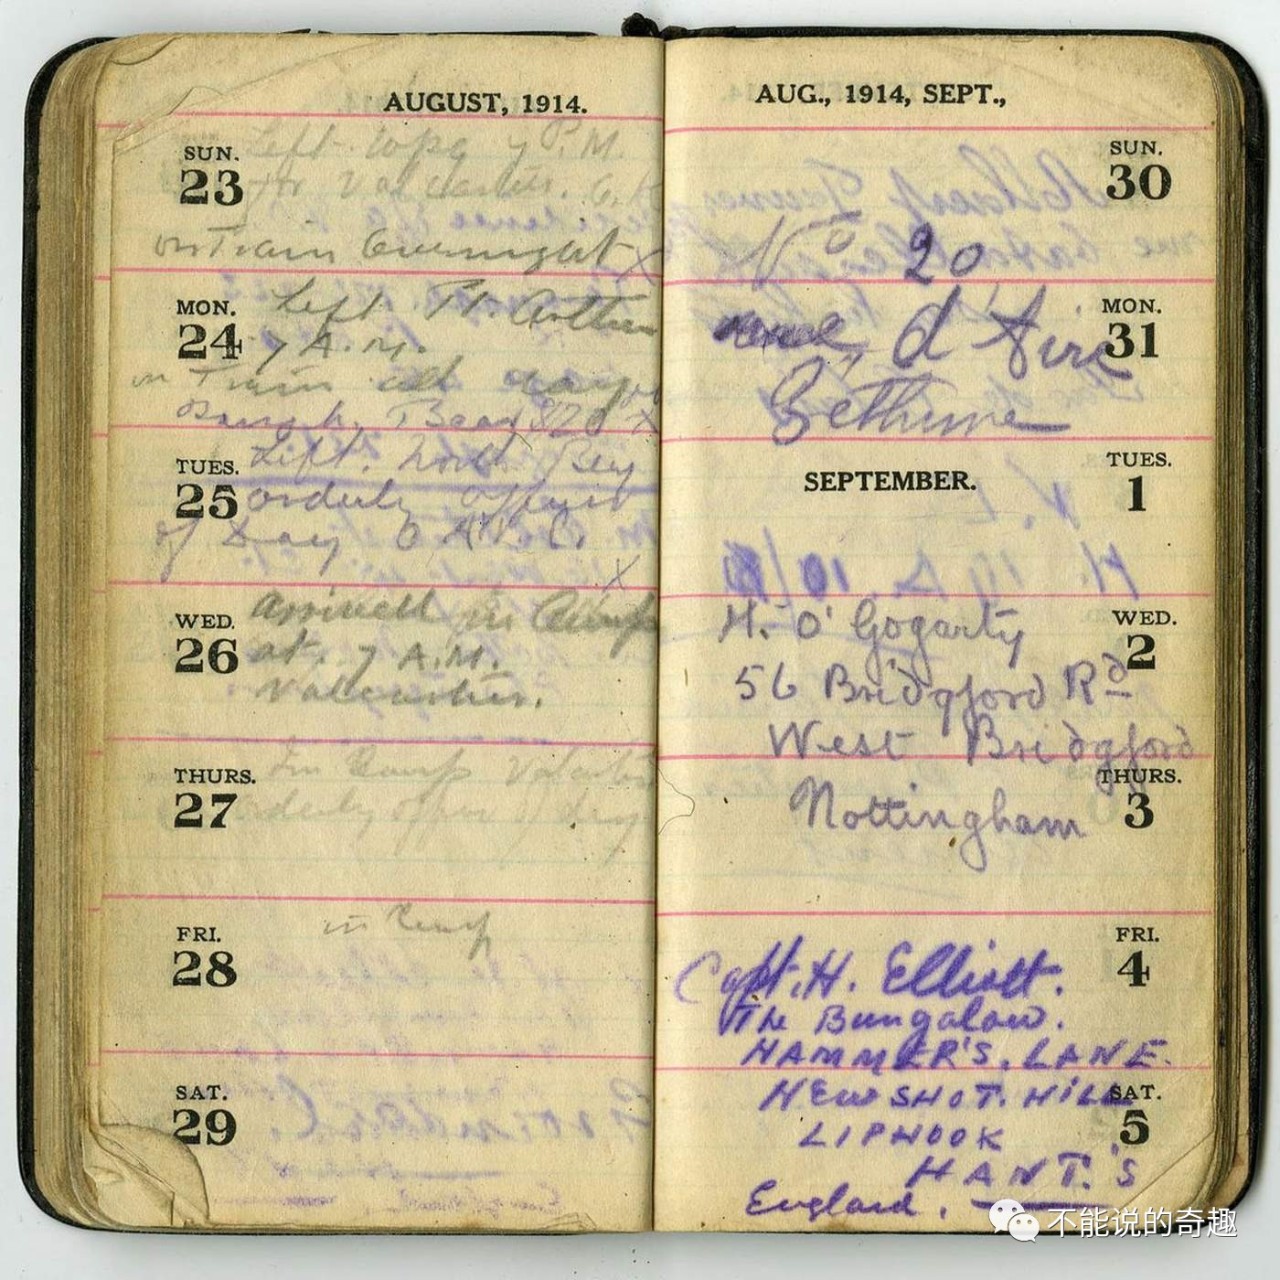 AUGUST, 1914.
SUN.
23
Left Wpg 7 P.M.
for Valcartier.
on Train Overnight X
MON.
24
Left Pt. Arthur
7 A.M.
on Train all day
X
TUES.
25
Left North Bay
orderly officer
of Day
X
WED.
26
arrived in Camp
at 7 A.M.
Valcartier.
THURS.
27
In Camp Valcartier
orderly officer of day
FRI.
28
in Camp
SAT.
29
AUG., 1914, SEPT.,
SUN.
30
No 20
MON.
31
rue d'Aire
Bethune
SEPTEMBER.
TUES.
1
WED.
2
H. O'Gogarty
56 Bridgford Rd
West Bridgford
THURS.
3
Nottingham
FRI.
4
Capt. H. Elliott.
The Bungalow.
HAMMER'S. LANE.
SAT.
5
NEWSHOT. HILL
LIPHOOK
HANT.'S
England.
不能说的奇趣